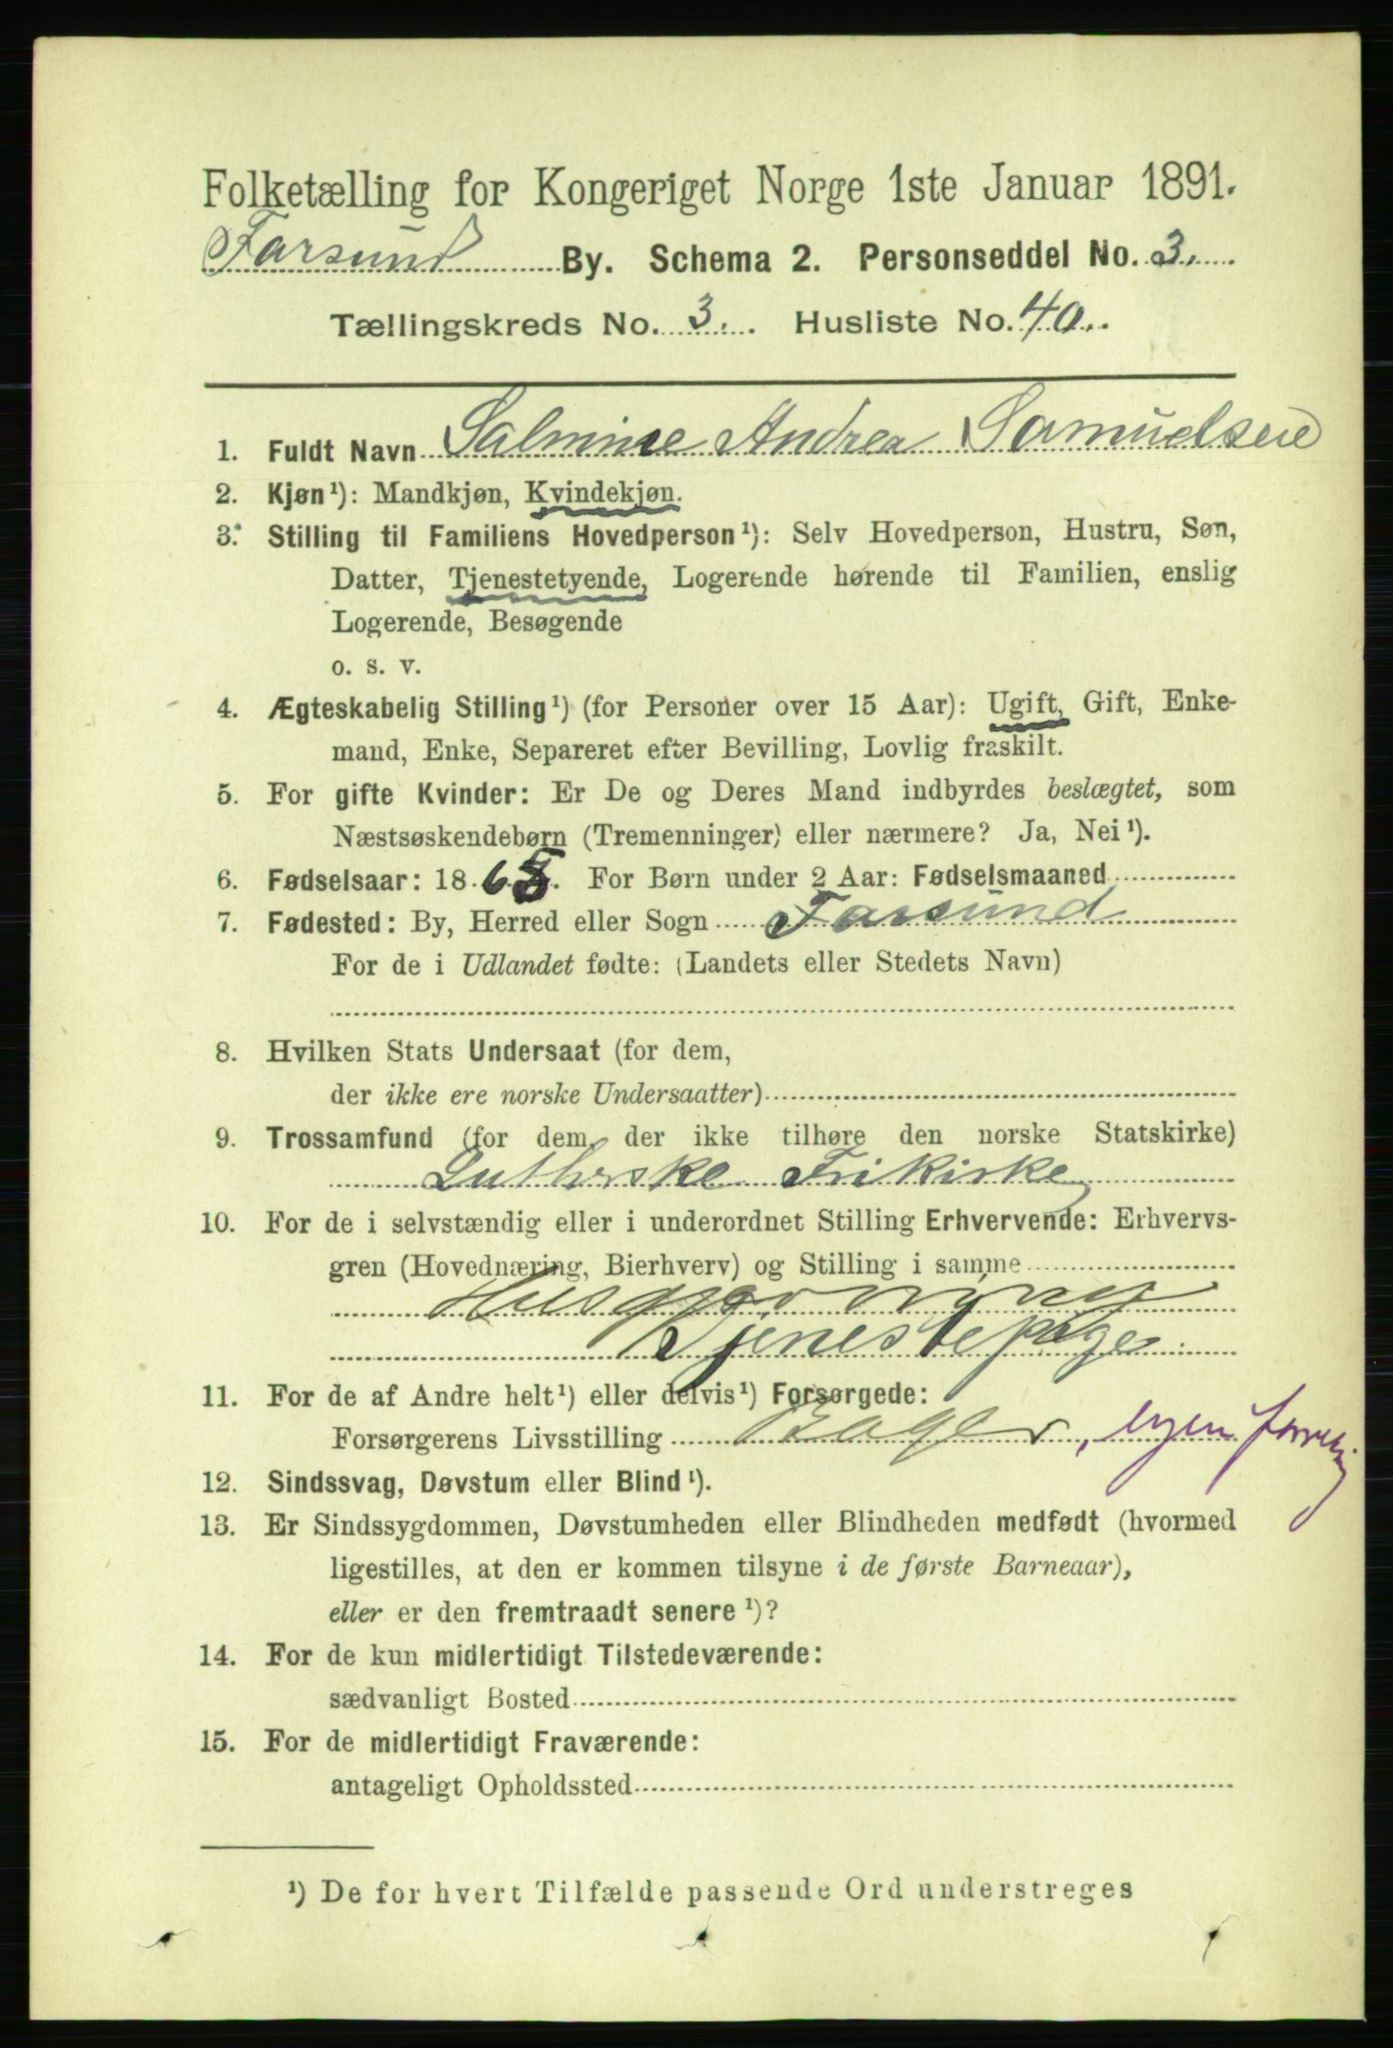 Folketælling for Kongeriget Norge 1ste Januar 1891.
Farsund By. Schema 2. Personseddel No. 3.
Tællingskreds No. 3. Husliste No. 40.
1. Fuldt Navn Salmine Andrea Samuelsen
2. Kjøn¹): Mandkjøn, Kvindekjøn.
3. Stilling til Familiens Hovedperson¹): Selv Hovedperson, Hustru, Søn,
Datter, Tjenestetyende, Logerende hørende til Familien, enslig
Logerende, Besøgende
o. s. v.
4. Ægteskabelig Stilling¹) (for Personer over 15 Aar): Ugift, Gift, Enke-
mand, Enke, Separeret efter Bevilling, Lovlig fraskilt.
5. For gifte Kvinder: Er De og Deres Mand indbyrdes beslægtet, som
Næstsøskendebørn (Tremenninger) eller nærmere? Ja, Nei¹).
6. Fødselsaar: 18 For Børn under 2 Aar: Fødselsmaaned
7. Fødested: By, Herred eller Sogn Farsund
For de i Udlandet fødte: (Landets eller Stedets Navn)
8. Hvilken Stats Undersaat (for dem,
der ikke ere norske Undersaatter)
9. Trossamfund (for dem, der ikke tilhøre den norske Statskirke)
Lutherske Frikirke
10. For de i selvstændig eller i underordnet Stilling Erhvervende: Erhvervs-
gren (Hovednæring, Bierhverv) og Stilling i samme
Husgjerning
Tjenestepige
11. For de af Andre helt¹) eller delvis¹) Forsørgede:
Forsørgerens Livsstilling Bager, egen forretning
12. Sindssvag, Døvstum eller Blind¹).
13. Er Sindssygdommen, Døvstumheden eller Blindheden medfødt (hvormed
ligestilles, at den er kommen tilsyne i de første Barneaar),
eller er den fremtraadt senere¹)?
14. For de kun midlertidigt Tilstedeværende:
sædvanligt Bosted
15. For de midlertidigt Fraværende:
antageligt Opholdssted
¹) De for hvert Tilfælde passende Ord understreges